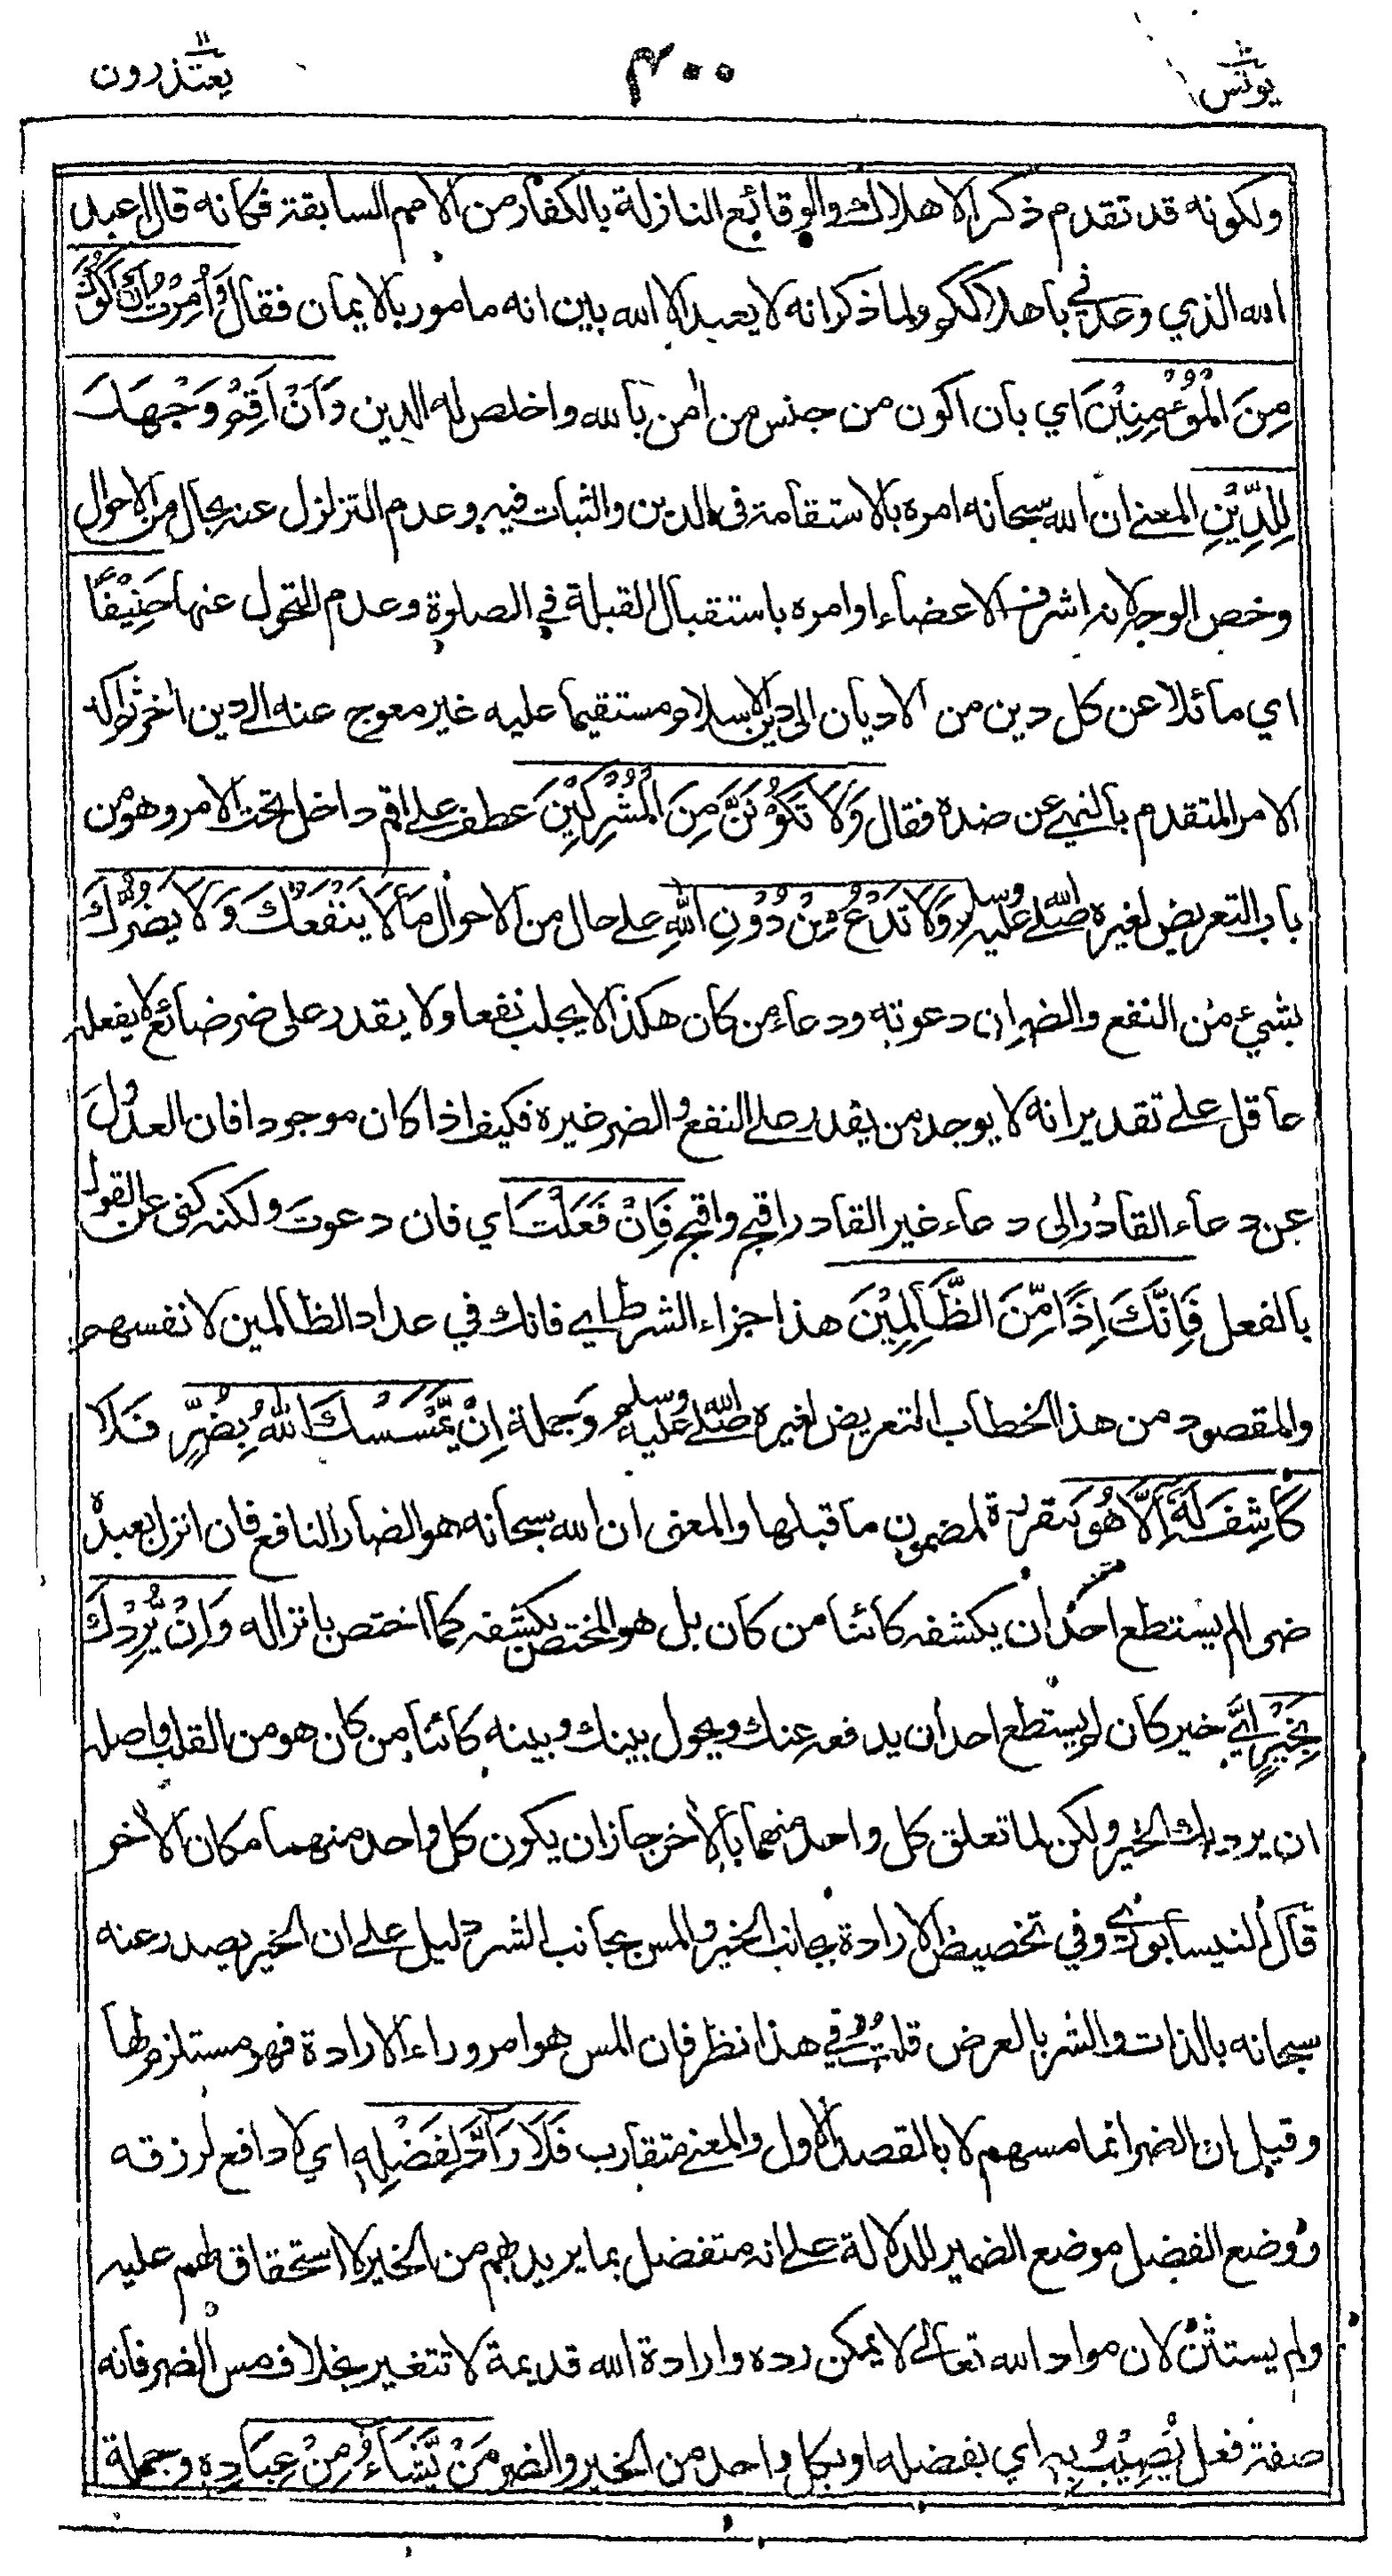 يونس ١٠
٤٠٠
يعتذرون ١١
ولكونه قد تقدم ذكر الاهلاك والوقائع النازلة بالكفار من الامم السابقة فكانه قال اعبد
الله الذي وعدني باهلاككم ولما ذكر انه لا يعبد الا الله بين انه مامور بالايمان فقال وَأُمِرْتُ أَنْ أَكُوْنَ
مِنَ الْمُؤْمِنِيْنَ اي بان اكون من جنس من اٰمن بالله واخلص له الدين وَأَنْ أَقِمْ وَجْهَكَ
لِلدِّيْنِ المعنى ان الله سبحانه امره بالاستقامة في الدين والثبات فيه وعدم التزلزل عنه بحال من الاحوال
وخص الوجه لانه اشرف الاعضاء او امره باستقبال القبلة في الصلوة وعدم التحول عنها حَنِيْفًا
اي مائلا عن كل دين من الاديان الى دين الاسلام مستقيما عليه غير معوج عنه الى دين اٰخر ثم اكد
الامر المتقدم بالنهي عن ضده فقال وَلَا تَكُوْنَنَّ مِنَ الْمُشْرِكِيْنَ عطف على اقم داخل تحت الامر وهو من
باب التعريض لغيره صلى الله عليه وسلم وَلَا تَدْعُ مِنْ دُوْنِ اللهِ على حال من الاحوال مَا لَا يَنْفَعُكَ وَلَا يَضُرُّكَ
بشيء من النفع والضر ان دعوته ودعاء من كان هكذا لا يجلب نفعا ولا يقدر على ضر ضائع لا يفعله
عاقل على تقدير انه لا يوجد من يقدر على النفع والضر غيره فكيف اذا كان موجودا فان العدول
عن دعاء القادر الى دعاء غير القادر اقبح واقبح فَإِنْ فَعَلْتَ اي فان دعوت ولكنه كنى عن القول
بالفعل فَإِنَّكَ إِذًا مِّنَ الظَّالِمِيْنَ هذا جزاء الشرط اي فانك في عداد الظالمين لانفسهم
والمقصود من هذا الخطاب التعريض لغيره صلى الله عليه وسلم وجملة إِنْ يَّمْسَسْكَ اللهُ بِضُرٍّ فَلَا
كَاشِفَ لَهٗ إِلَّا هُوَ مقررة لمضمون ما قبلها والمعنى ان الله سبحانه هو الضار النافع فان انزل بعبده
ضرا لم يستطع احد ان يكشفه كائنا من كان بل هو المختص بكشفه كما اختص بانزاله وَإِنْ يُّرِدْكَ
بِخَيْرٍ اي خير كان لم يستطع احد ان يدفعه عنك ويحول بينك وبينه كائنا من كان هو من القلب واصله
ان يرد بك الخير ولكن لما تعلق كل واحد منهما بالاٰخر جاز ان يكون كل واحد منهما مكان الاٰخر
قال النيسابوري وفي تخصيص الارادة بجانب الخير والمس بجانب الشر دليل على ان الخير يصدر عنه
سبحانه بالذات والشر بالعرض قلت وفي هذا نظر فان المس هو امر وراء الارادة فهو مستلزم لها
وقيل ان الضر انما مسهم لا بالقصد الاول والمعنى متقارب فَلَا رَادَّ لِفَضْلِهٖ اي لا دافع لرزقه
ووضع الفضل موضع الضمير للدلالة على انه متفضل بما يريد لهم من الخير لا استحقاق لهم عليه
ولم يستثن لان مراد الله تعالى لا يمكن رده وارادة الله قديمة لا تتغير بخلاف مس الضر فانه
صفة فعل يُصِيْبُ بِهٖ اي بفضله او بكل واحد من الخير والضر مَنْ يَّشَاءُ مِنْ عِبَادِهٖ وجملة